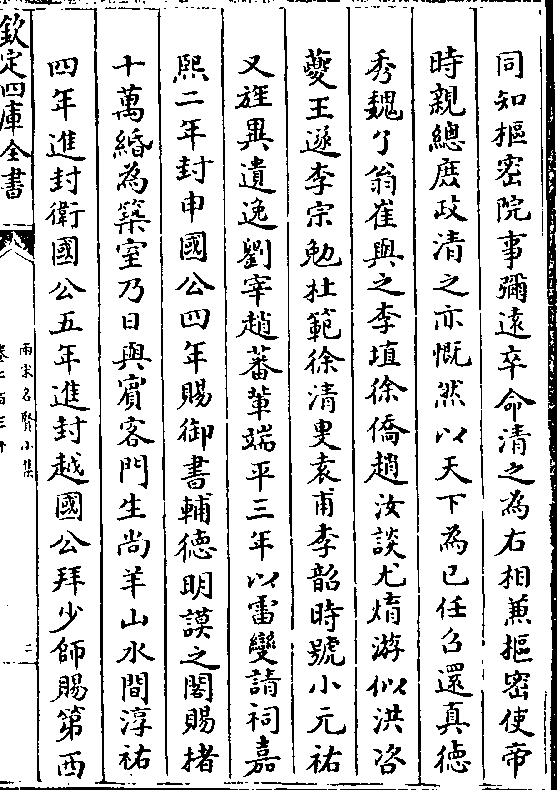 同知樞密院事彌遠卒命清之為右相兼樞密使帝
時親總庶政清之亦慨然以天下為己任召還真德
秀魏了翁崔與之李埴徐僑趙汝談尤焴游似洪咨
夔王遂李宗勉杜範徐清叟袁甫李韶時號小元祐
又旌異遺逸劉宰趙蕃輩端平三年以霅變請祠嘉
熙二年封申國公四年賜御書輔德明謨之閣賜楮
十萬緡為築室乃日與賓客門生尚羊山水間淳祐
四年進封衛國公五年進封越國公拜少師賜第西
欽定四庫全書
兩宋名賢小集
二